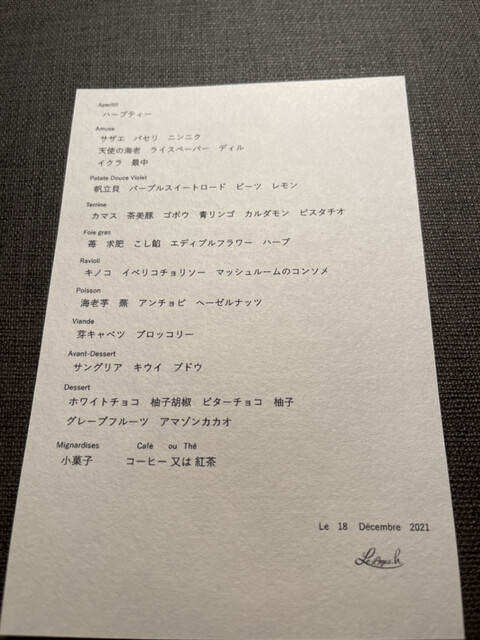 Apéritif
ハーブティー
Amuse
サザエ パセリ ニンニク
天使の海老 ライスペーパー ディル
イクラ 最中
Patate Douce Violet
帆立貝 パープルスイートロード ビーツ レモン
Terrine
カマス 茶美豚 ゴボウ 青リンゴ カルダモン ピスタチオ
Foie gras
苺 求肥 こし餡 エディブルフラワー ハーブ
Ravioli
キノコ イベリコチョリソー マッシュルームのコンソメ
Poisson
海老芋 蕪 アンチョビ ヘーゼルナッツ
Viande
芽キャベツ ブロッコリー
Avant-Dessert
サングリア キウイ ブドウ
Dessert
ホワイトチョコ 柚子胡椒 ビターチョコ 柚子
グレープフルーツ アマゾンカカオ
Mignardises Café ou Thé
小菓子 コーヒー 又は 紅茶
Le 18 Décembre 2021